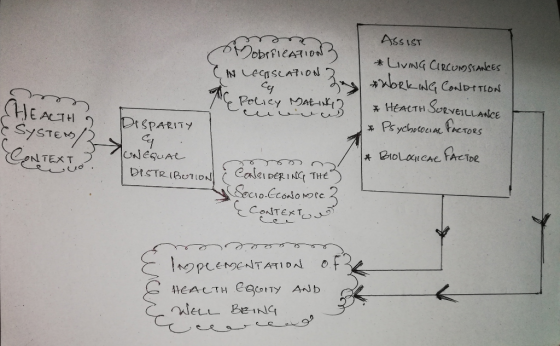 HEALTH
SYSTEM/
CONTEXT
DISPARITY
&
UNEQUAL
DISTRIBUTION
MODIFICATION
IN LEGISLATION
&
POLICY MAKING
CONSIDERING THE
SOCIO-ECONOMIC
CONTEXT
ASSIST
* LIVING CIRCUMSTANCES
* WORKING CONDITION
* HEALTH SURVEILLANCE
* PSYCHOLOCIAL FACTORS
* BIOLOGICAL FACTOR
IMPLEMENTATION OF
HEALTH EQUITY AND
WELL BEING